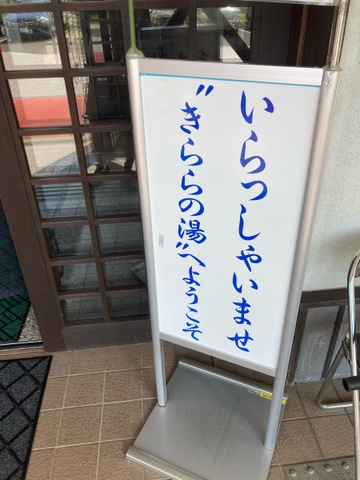 いらっしゃいませ
“きららの湯”へようこそ